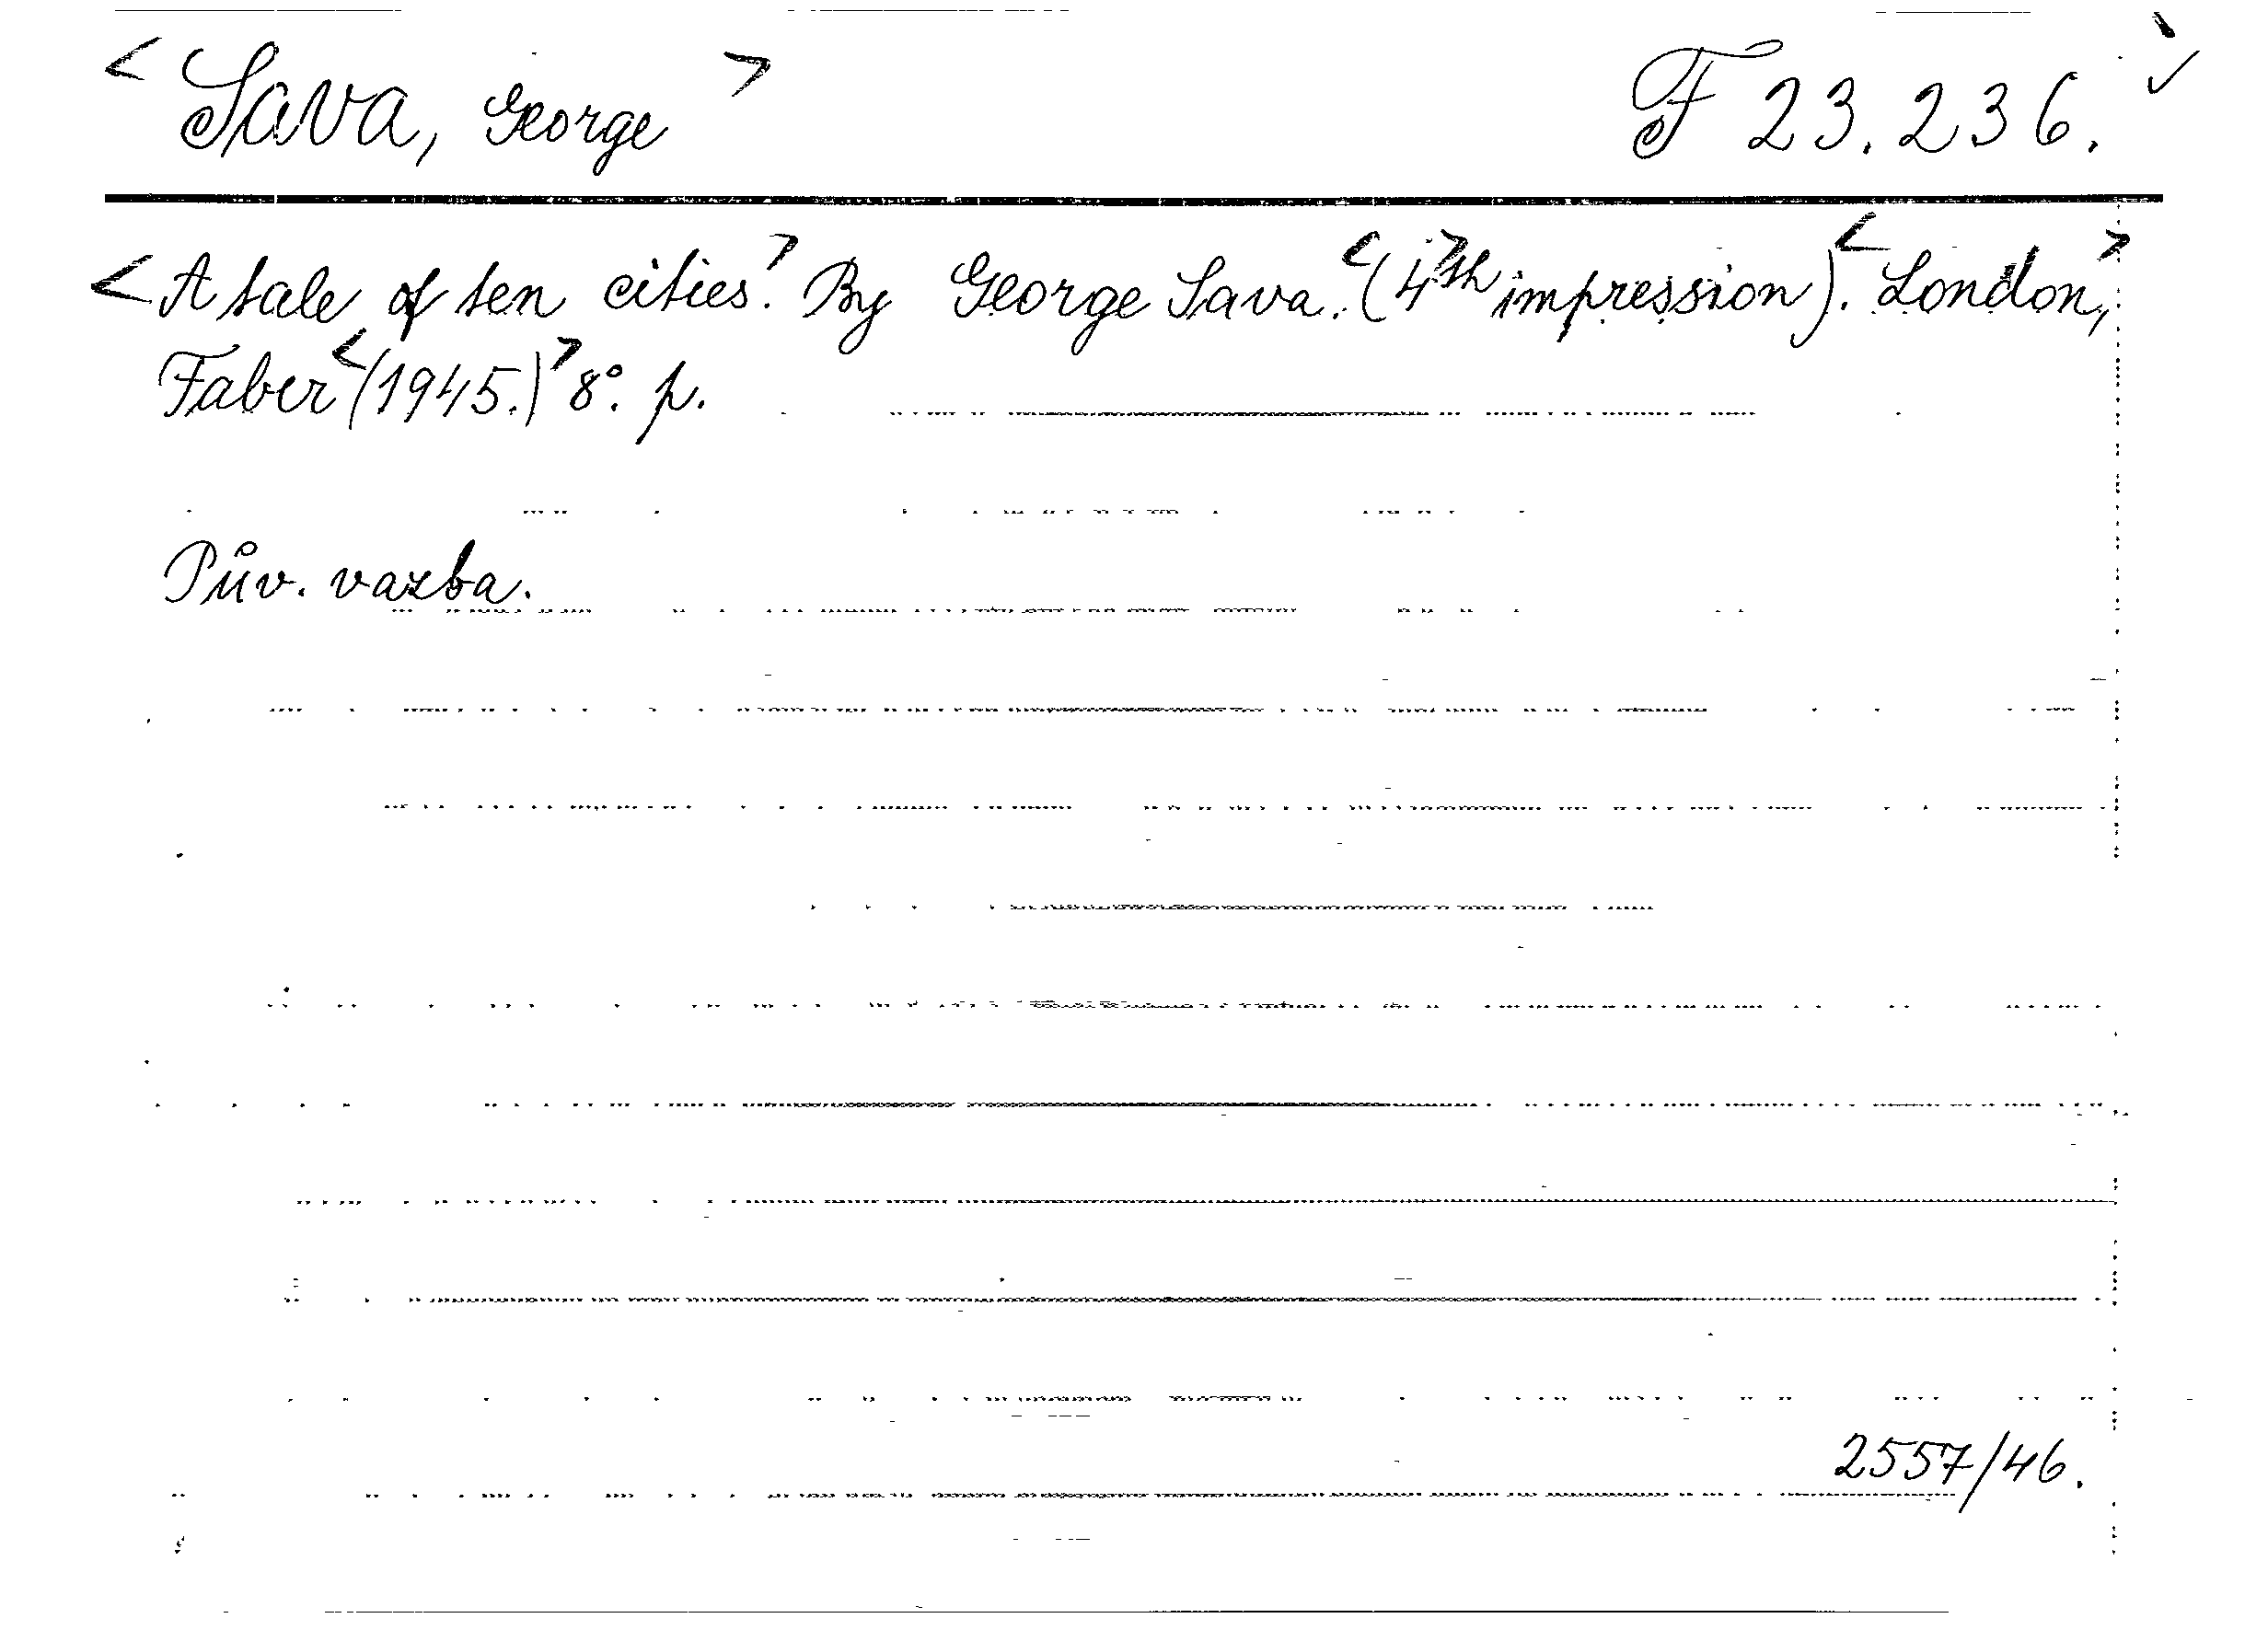 < Sava, George > F 23.236.
<A tale of ten cities.> By George Sava. <(4>th impression). <London,>
Faber <(1945.)> 8°. p.
Pův. vazba.
2557/46.